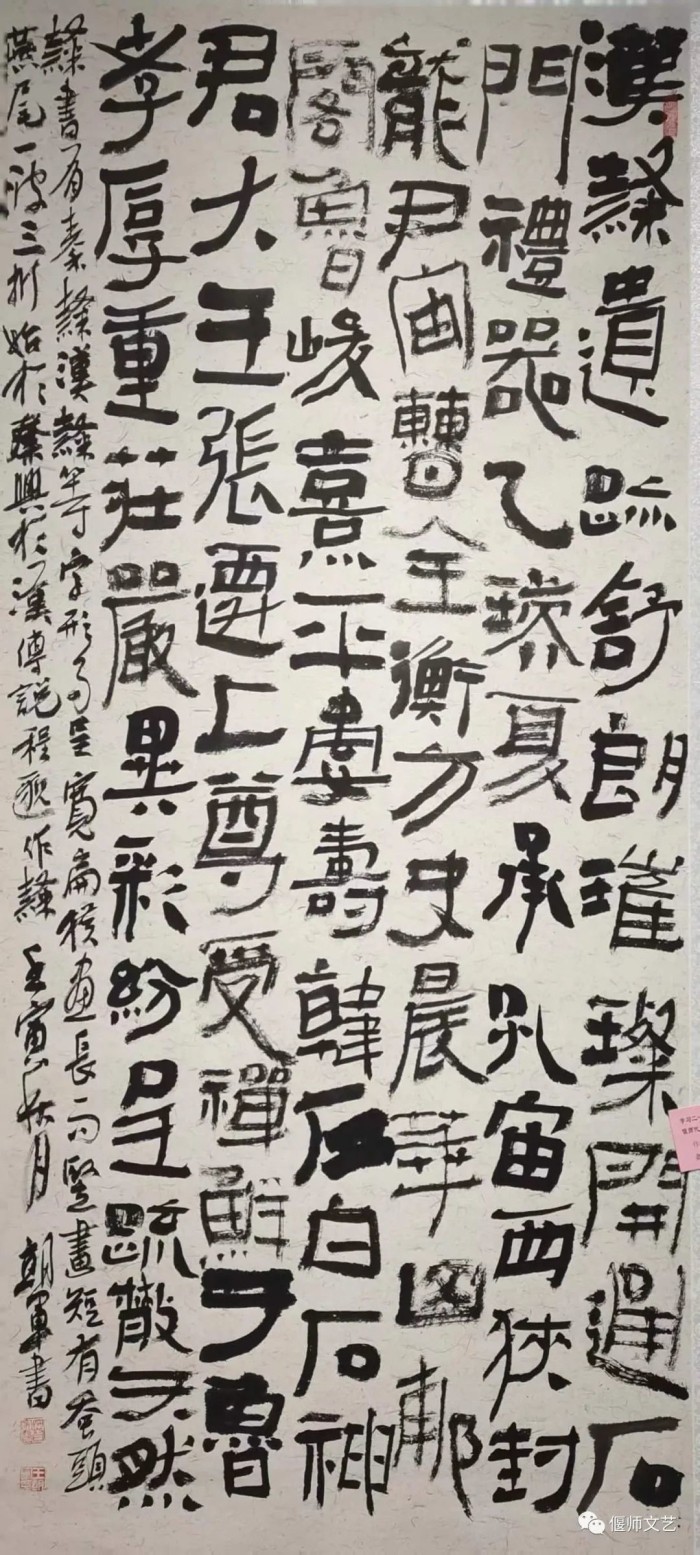 漢隸遺疏舒朗璀璨開通石
門禮器乙瑛夏承孔宙西狹封
龍尹宙曹全衡方史晨華山郙
閣魯峻熹平婁壽韓仁白石神
君大王張遷上尊受禪鮮于魯
孝厚重莊嚴異彩紛呈疏散天然
隸書有秦隸漢隸等字形多呈寬扁橫畫長而豎畫短有蚕頭
燕尾一波三折始於秦興於漢傳說程邈作隸 壬寅秋月 朝軍書
偃师文艺